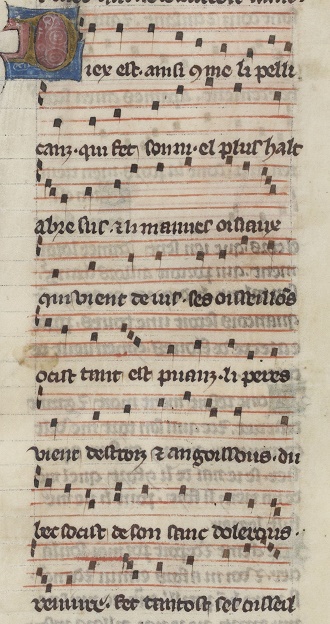 Diex est ausi ꝯme li pelli
canz· qui fet son ni· el plus halt
abre sus· ⁊ li mauues oiseaus
qui vient de ius· ses oiseillōs
ocist tant est puanz· li peres
vient destroiz ⁊ angoissous· du
bec socist de son sanc dolerous
reuiure· fet tantost ses oiseill